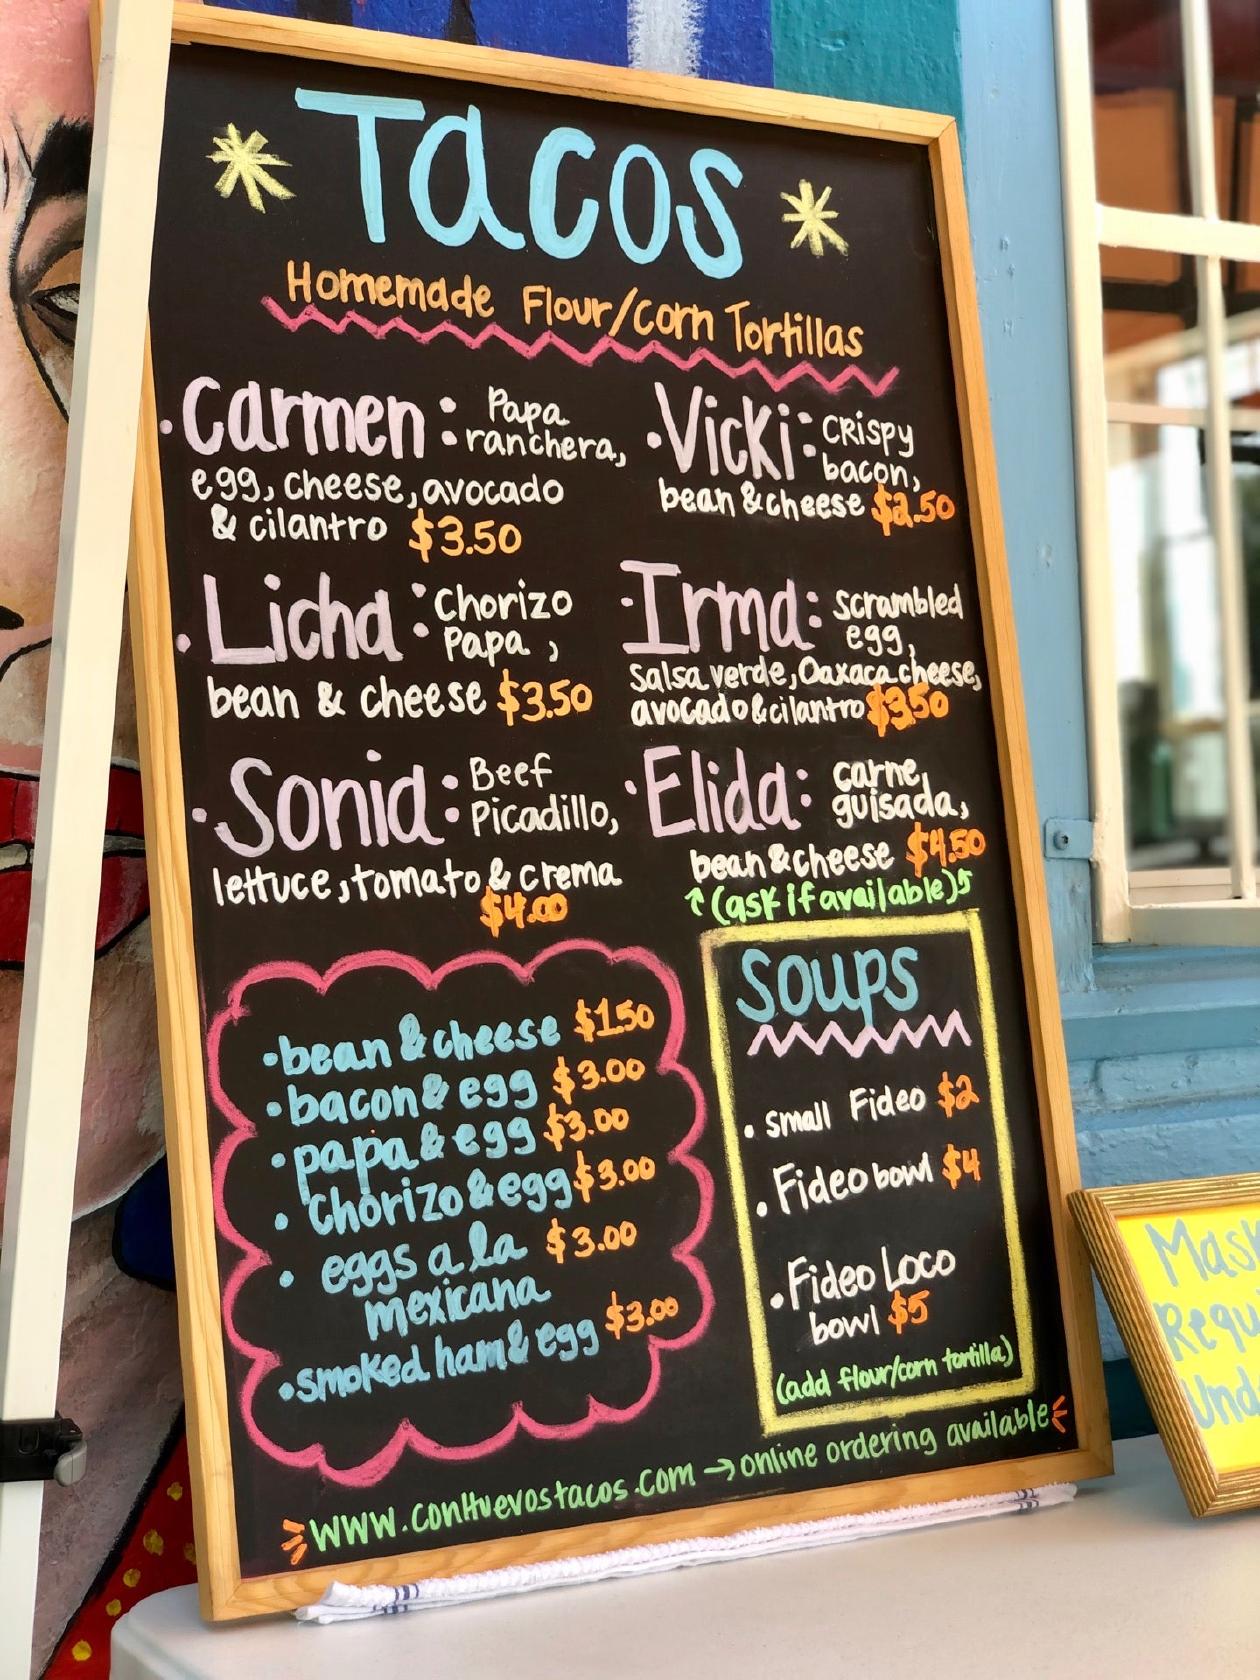 Tacos
Homemade Flour/Corn Tortillas
• Carmen: Papa
ranchera,
egg, cheese, avocado
& cilantro $3.50
• Vicki: Crispy
bacon,
bean & cheese $2.50
• Licha: Chorizo
Papa,
bean & cheese $3.50
• Irma: scrambled
egg,
salsa verde, Oaxaca cheese,
avocado & cilantro $3.50
• Sonia: Beef
Picadillo,
lettuce, tomato & crema
$4.00
• Elida: carne,
guisada,
bean & cheese $4.50
↑ (ask if available) ↑
• bean & cheese $1.50
• bacon & egg $3.00
• papa & egg $3.00
• Chorizo & egg $3.00
• eggs a la $3.00
mexicana
• smoked ham & egg $3.00
Soups
• small Fideo $2
• Fideo bowl $4
• Fideo Loco
bowl $5
(add flour/corn tortilla)
www.conHuevostacos.com → online ordering available
Mask
Requ
Und